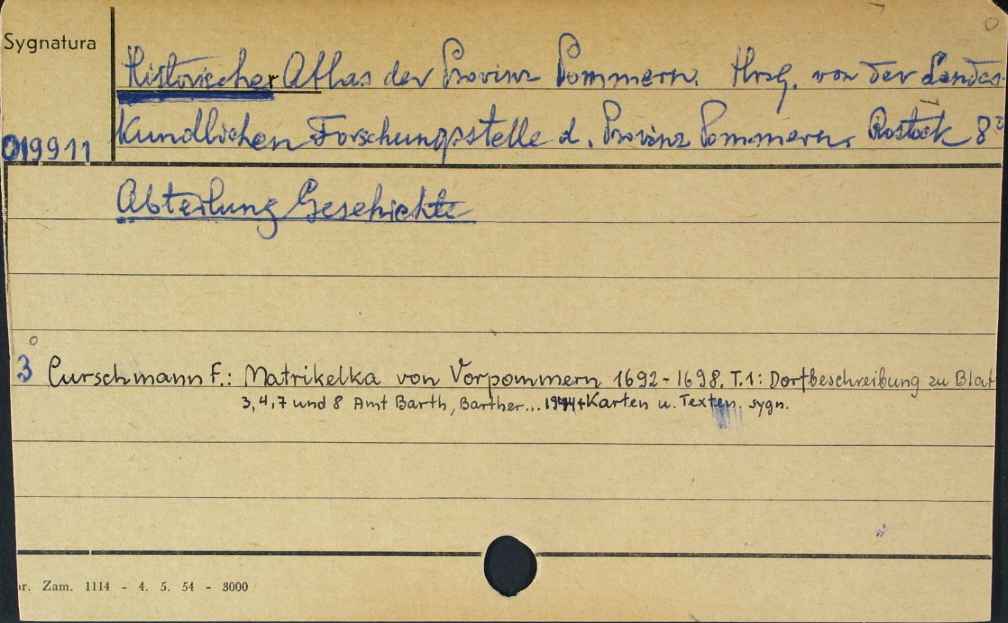 Sygnatura
Historischer Atlas der Provinz Pommern. Hrsg. von der Landes
019911
kundlichen Forschungsstelle d. Provinz Pommern. Rostock 8°
Abteilung Geschichte
3 Curschmann F.: Matrikelka von Vorpommern 1692-1698. T.1: Dorfbeschreibung zu Blat
3, 4, 7 und 8 Amt Barth, Barther... 1944 + Karten u. Texten, sygn.
r. Zam. 1114 - 4. 5. 54 - 3000